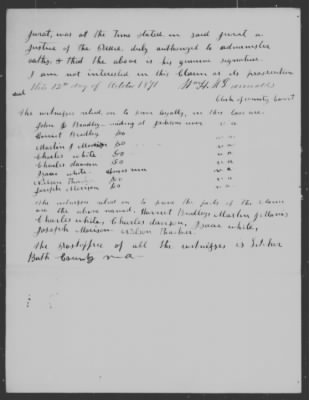 jurat, was at the Time stated in said jurat a
justice of the Peace, duly authorized to administer
oaths, & that the above is his genuine signature.
I am not interested in this Claim or its prosecution
this 12th day of October 1871 Wm H. H.
Clerk of County Court
The witnesses relied on to prove loyalty, in this case are
John Bradley residing at va
Harriet Bradley Do va
Martin J Do va
Charles White Do va
Charles Dawson Do va
Isaac White va
Nelson Do va
Joseph Morison Do va
The witnesses relied on to prove the facts of the Claim
are the above named, Harriet Bradley, Martin J
Charles White, Charles Dawson, Isaac White,
Joseph Morison Nelson
The Postoffice of all the witnesses is
Bath County va